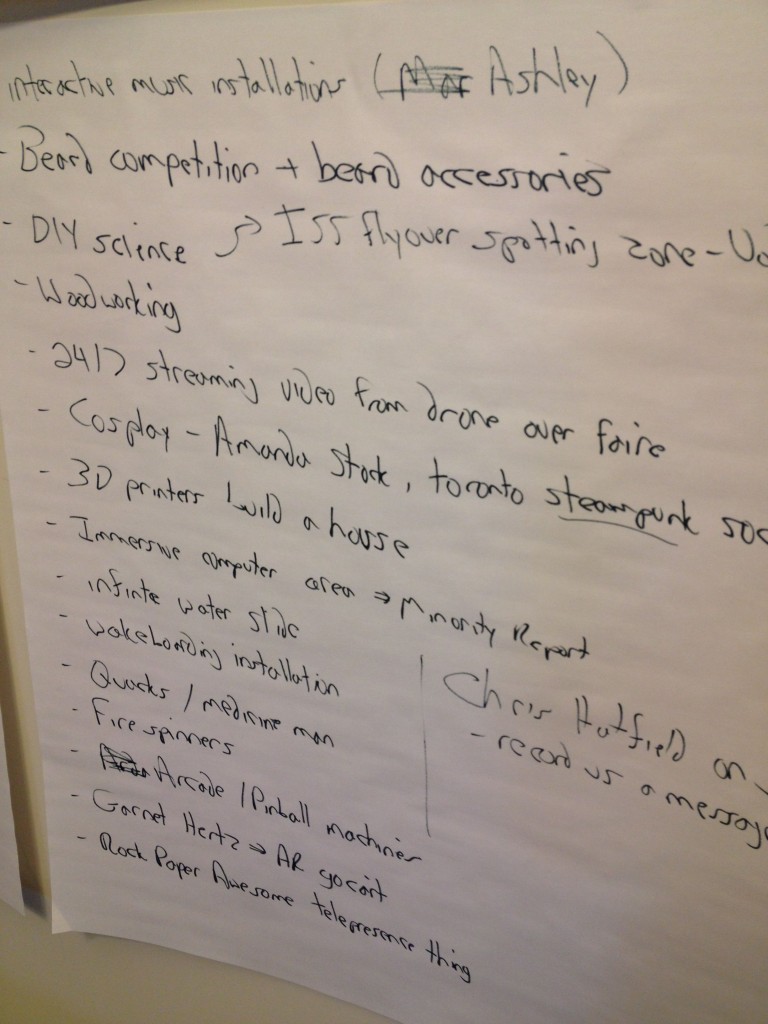 interactive music installations (Ashley)
- Beard competition + beard accessories
- DIY science → ISS flyover spotting zone -
- Woodworking
- 24/7 streaming video from drone over faire
- Cosplay - Amanda Stock, toronto steampunk soc
- 3D printers build a house
- Immersive computer area → Minority Report
- infinte water slide
- wakeboarding installation
- Quacks / medicine man
- Fire spinners
- Arcade / Pinball machines
- Garnet Hertz → AR gocart
- Rock Paper Awesome telepresence thing
Chris Hatfield on
- record us a message